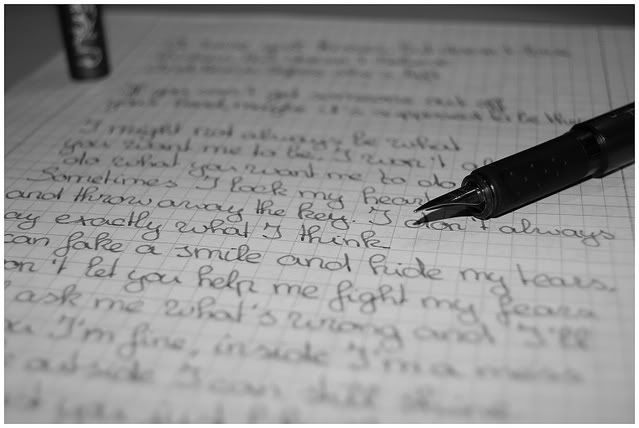 If you can't get someone out off
your head maybe it's supposed to be the
I might not always be what
you want me to be. I won't al
do what you want me to do
Sometimes I lock my hear
and throw away the key. I don't always
ay exactly what I think
can fake a smile and hide my tears.
on't let you help me fight my fears
ask me what's wrong and I'll
u I'm fine, inside I'm a mess
outside I can still shine
you just